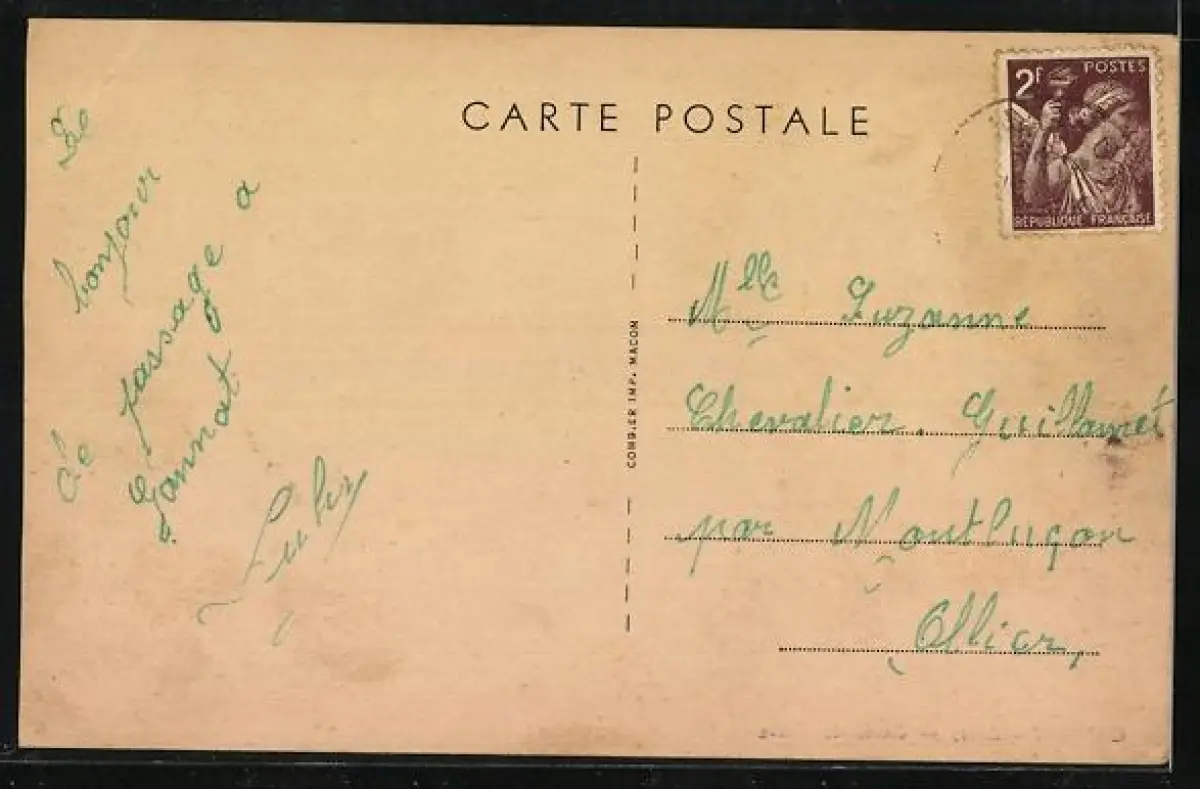 CARTE POSTALE
2F POSTES
RÉPUBLIQUE FRANÇAISE
Le
bonjour
de passage a
Gannat
COMBIER IMP. MACON
Mlle Suzanne
Chevalier. Guillamet
par Montluçon
Allier,